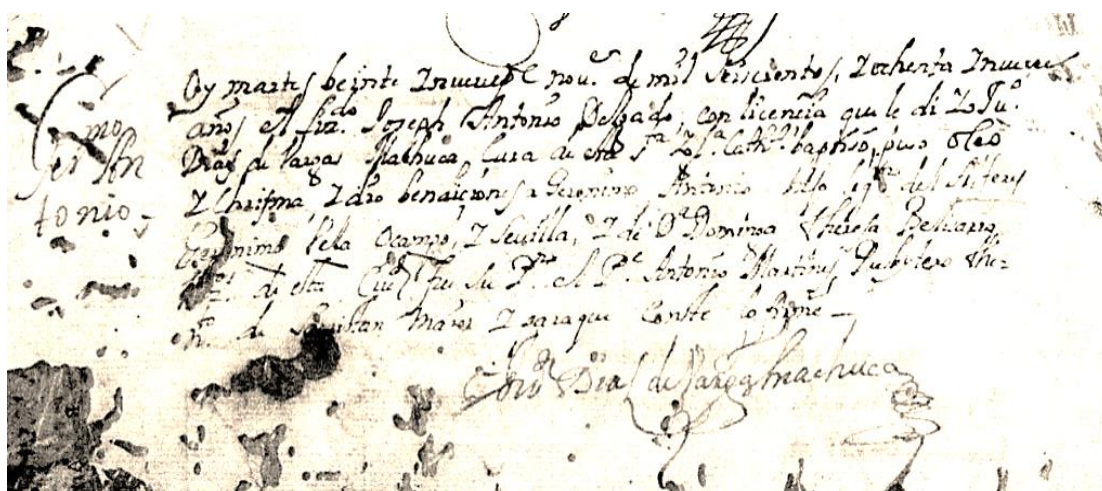 Ger.mo
An
tonio
Oy martes beinte I nueve de nou.e de mil seiscientos, I ochenta I nueve
años el liz.do Joseph Antonio Delgado, con licencia que le di Io Ju.o
Dias de Vargas Machuca, Cura de esta S.ta Ig.a Cath.l baptisó, puso óleo
I Chrisma, I dio bendiciones a Geronimo Antonio hijo leg.mo del Alferes
Geronimo Vela Ocampo, I Sevilla, I de D.a Dominga Theresa Belisario
de esta Ciu.d fue su P.no el P.e Antonio Martines Presbitero The-
de sachristan Maior I para que Conste lo firmé
Ju.o Dias de Vargas Machuca